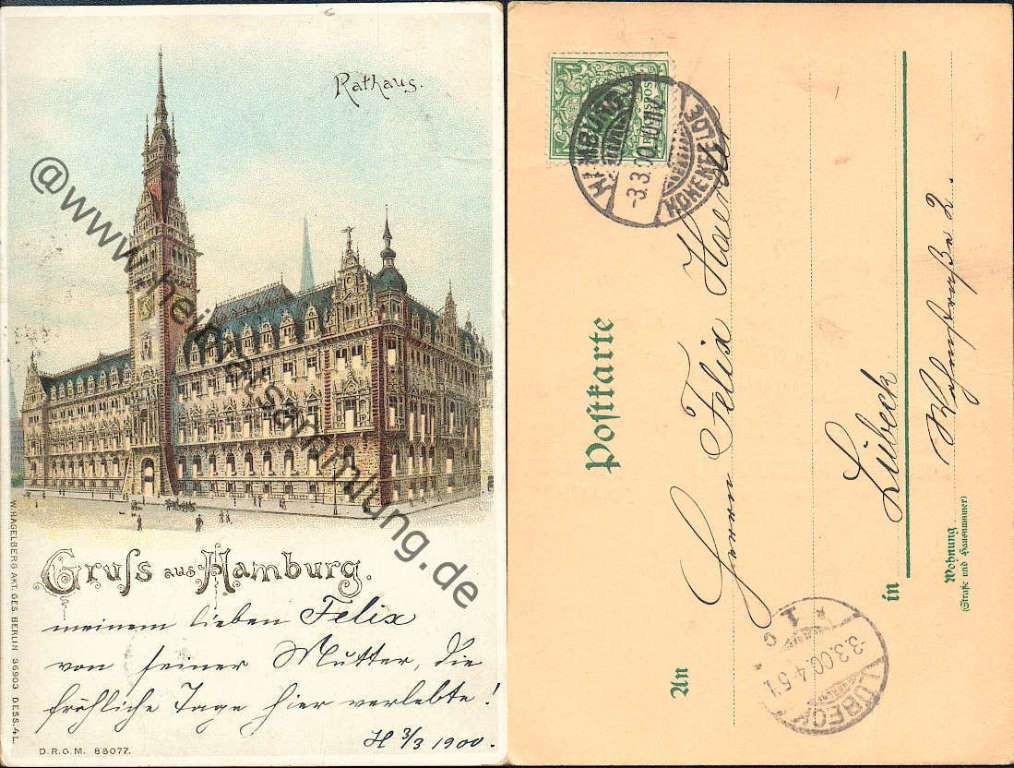 Rathaus.
@www.heimatsammlung.de
Gruſs aus Hamburg.
meinem lieben Felix
von seiner Mutter, die
fröhliche Tage hier verlebte!
H 3/3 1900.
W. HAGELBERG AKT. GES. BERLIN 36903 DESS. 4 L.
D.R.G.M. 88077.
HAMBURG
3.3.00.10-11V.
Postkarte
An Herrn Felix
in Lübeck
Wohnung
(Straße und Hausnummer)
LÜBECK
3.3.00.4-5
1